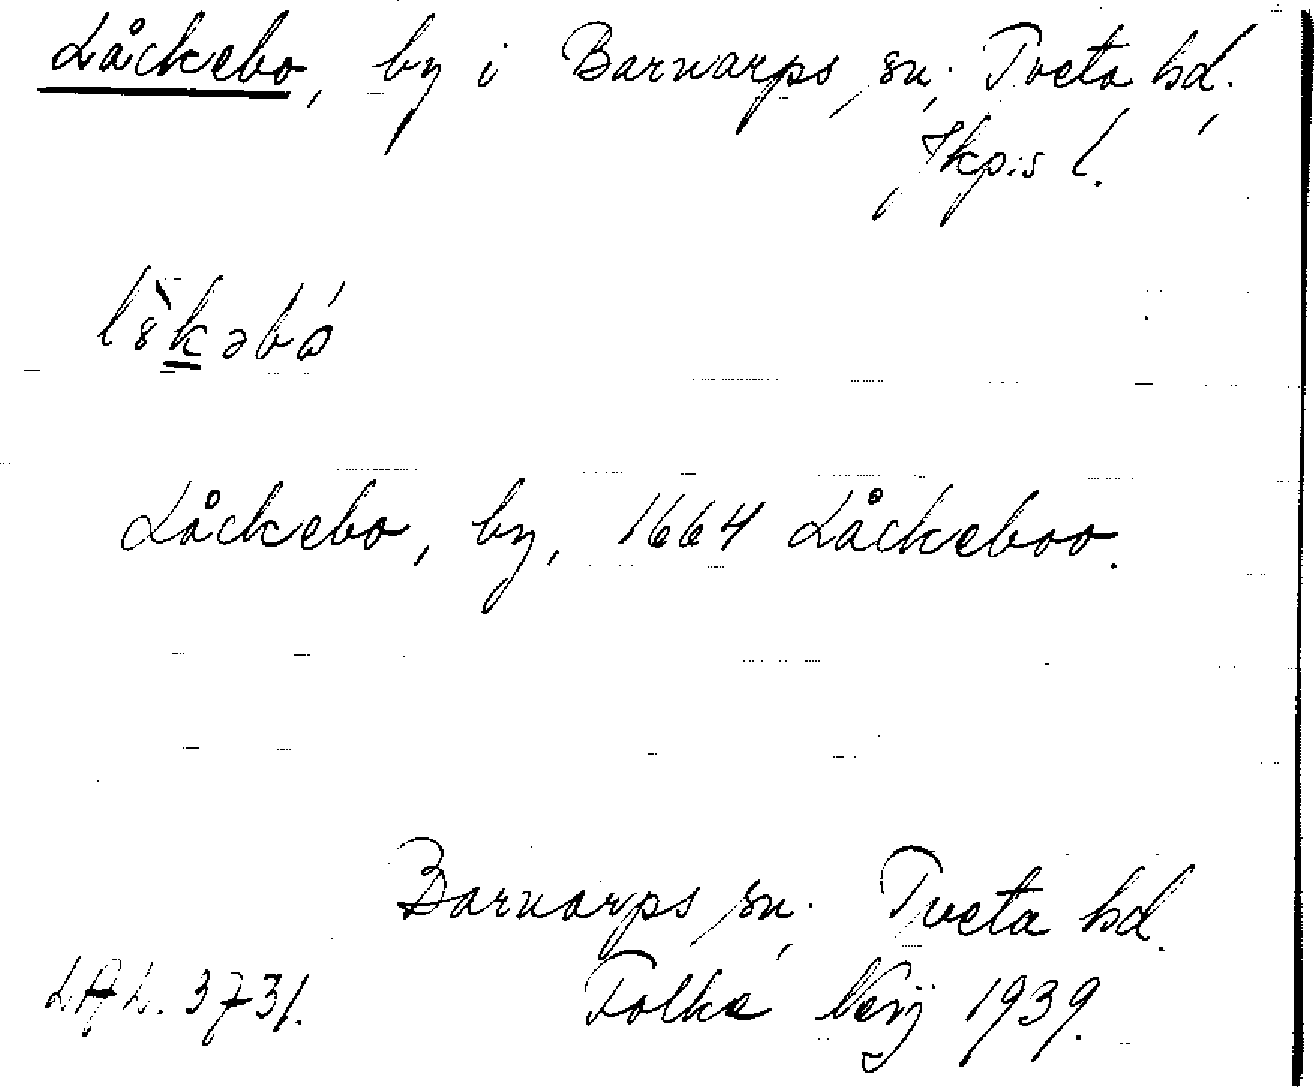 Låckebo, by i Barnarps sn, Tveta hd,
Jkp:s l.
Låckebo, by, 1664 Låckeboo.
Barnarps sn, Tveta hd.
LAL. 3731. Folke 1939.